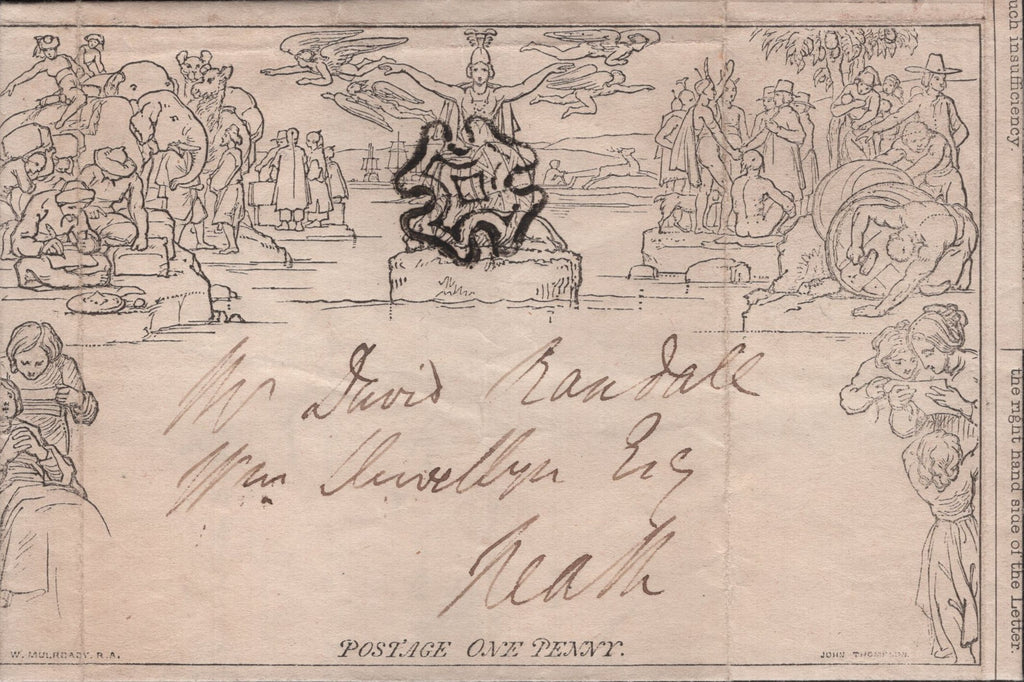 Mr David Randall
Wm Llewellyn Esq
Neath
POSTAGE ONE PENNY.
W. MULREADY. R.A.
JOHN THOMPSON.
uch insufficiency
the right hand side of the Letter.